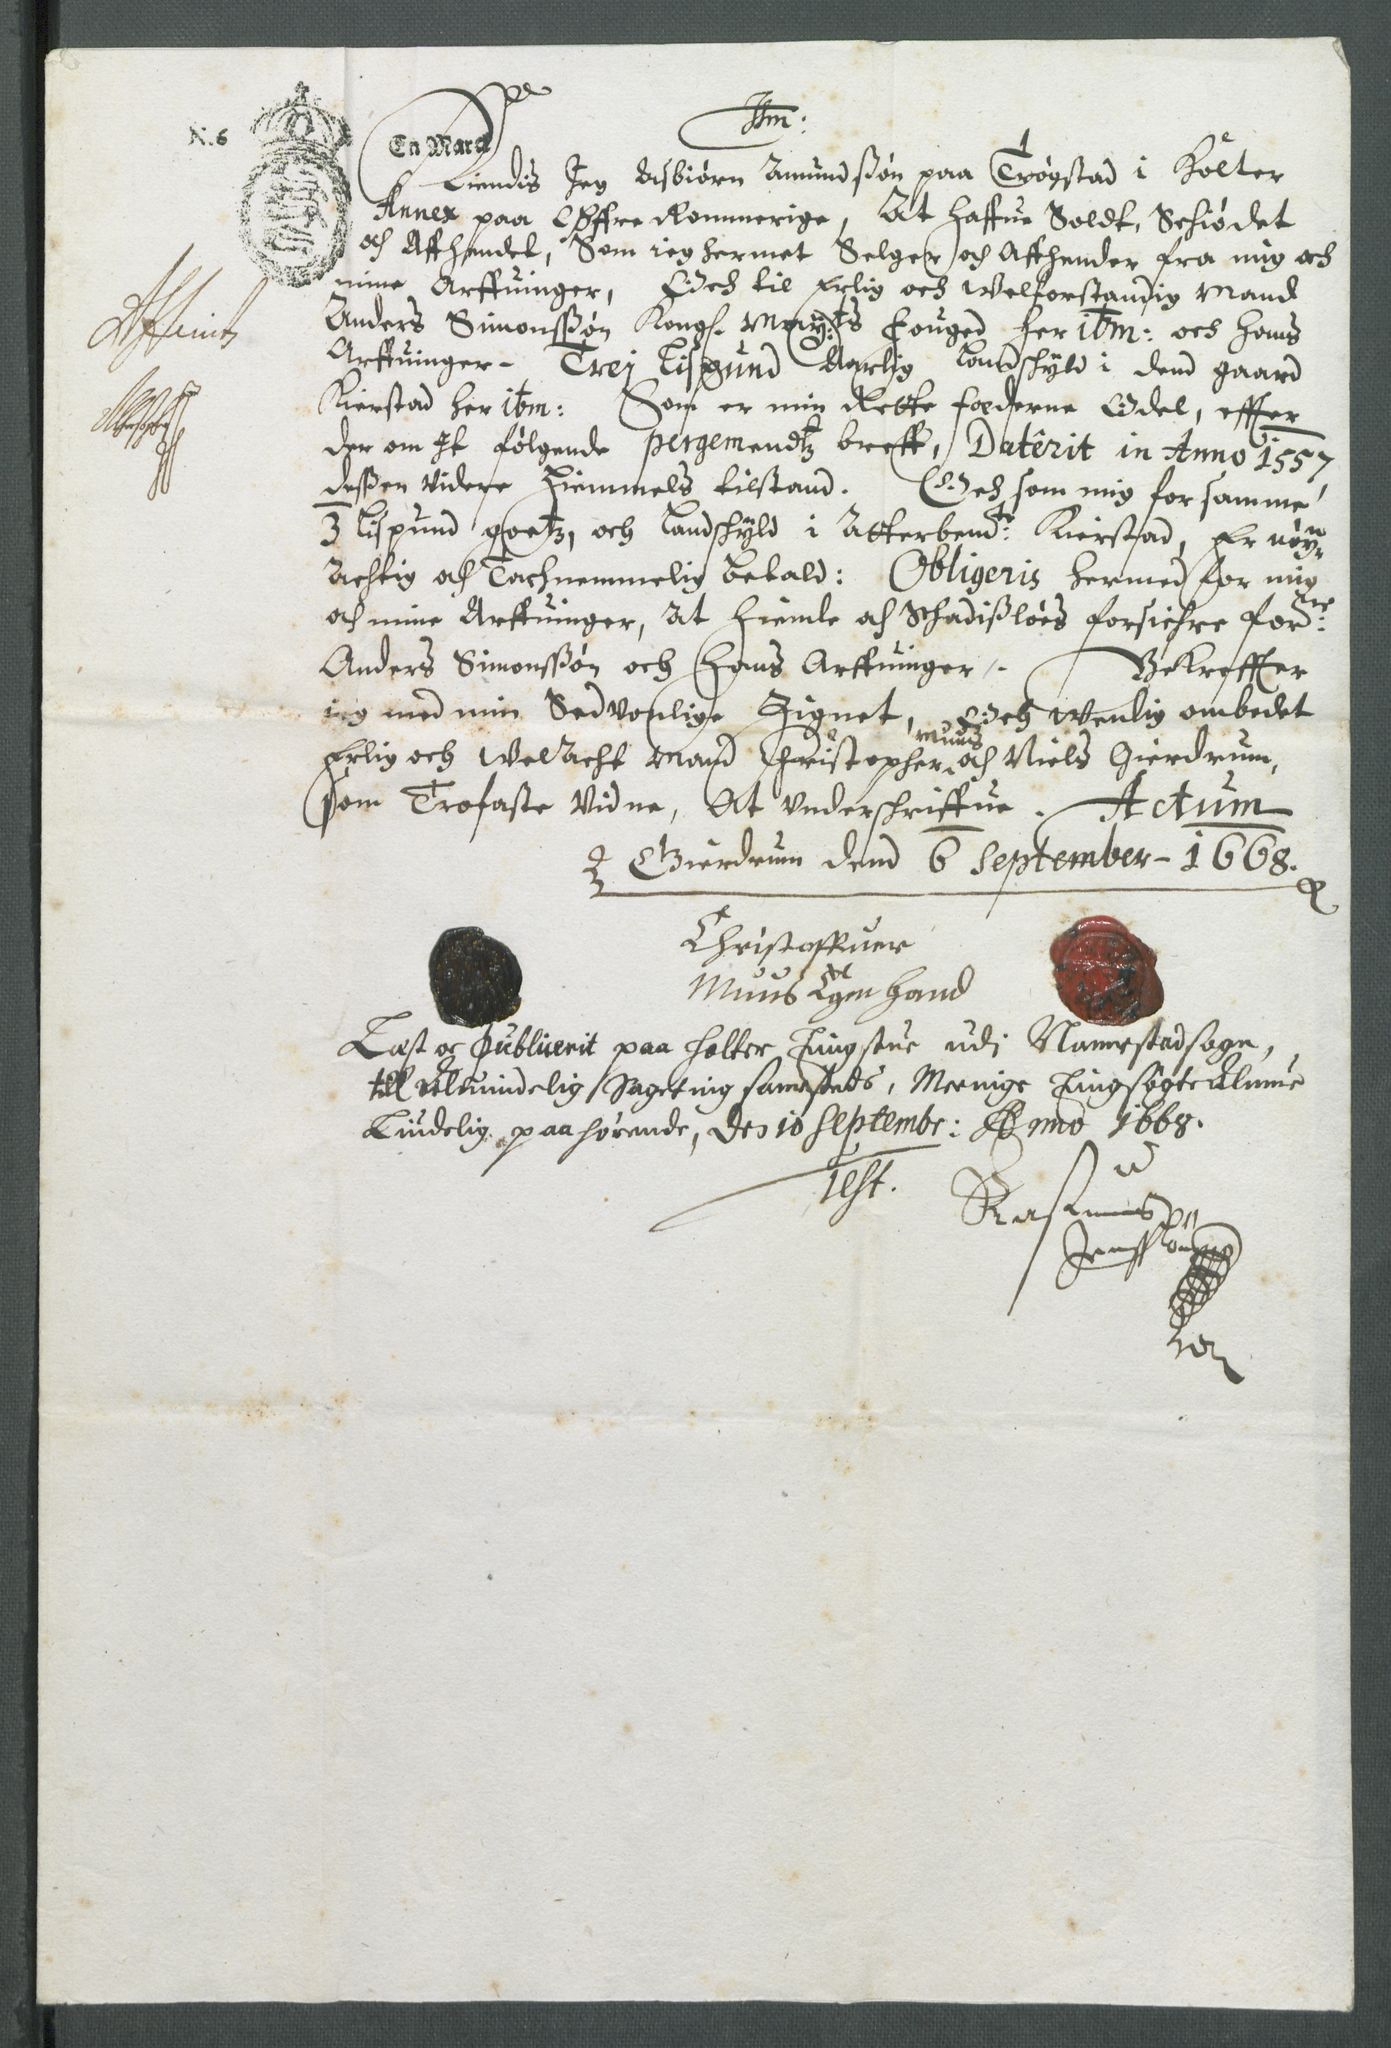 N. 6
En Marck
Itm:
Kiendis Jeg Asbiørn Amundsøn paa Trøgstad i Holter
Annex paa Øffre Rommerige, At haffue Soldt, Schiødet
och Affhendet, Som ieg hermet Selger och Affhender fra mig och
mine Arffuinger, Och til Erlig och Welforstandig Mand
Anders Simonssøn Kongl. Mayts Fouged her ibm: och hans
Arffuinger - Trej Lispund Aarlig Landschyld i dend gaard
Kierstad her ibm: Som er min Rette fæderne Odel, effter
der om It følgende pergemendtz breff, Daterit in Anno 1557,
dessen Videre Hiemmels tilstand. Och som mig for samme
3 Lispund goetz, och Landschyld i Atterbendte Kierstad, Er nøy-
achtig och Tachnemmelig betald: Obligeris hermed for mig
och mine Arffuinger, At hiemle och Schadisløes forsichre forne:
Anders Simonssøn och hans Arffuinger. Bekreffter
ieg med min Sedvonlige Zignet, Och Wenlig ombedet
Erlig och Welacht Mand Christopher Muus och Niels Gierdrum,
som Trofaste Vidne, At Underschriffue. Actum
Gierdrum dend 6 September - 1668.
Christoffuer
Muus Egen Hand
Læst oc Publicerit paa Holter Tingstue udj Nannestad sogn,
till Almindelig Sageting samesteds, Meenige Tingsøgte Almue
Liudelig paahørende, Den 10 Septembr: Anno 1668.
Test.
Rasmus
Jenssøn